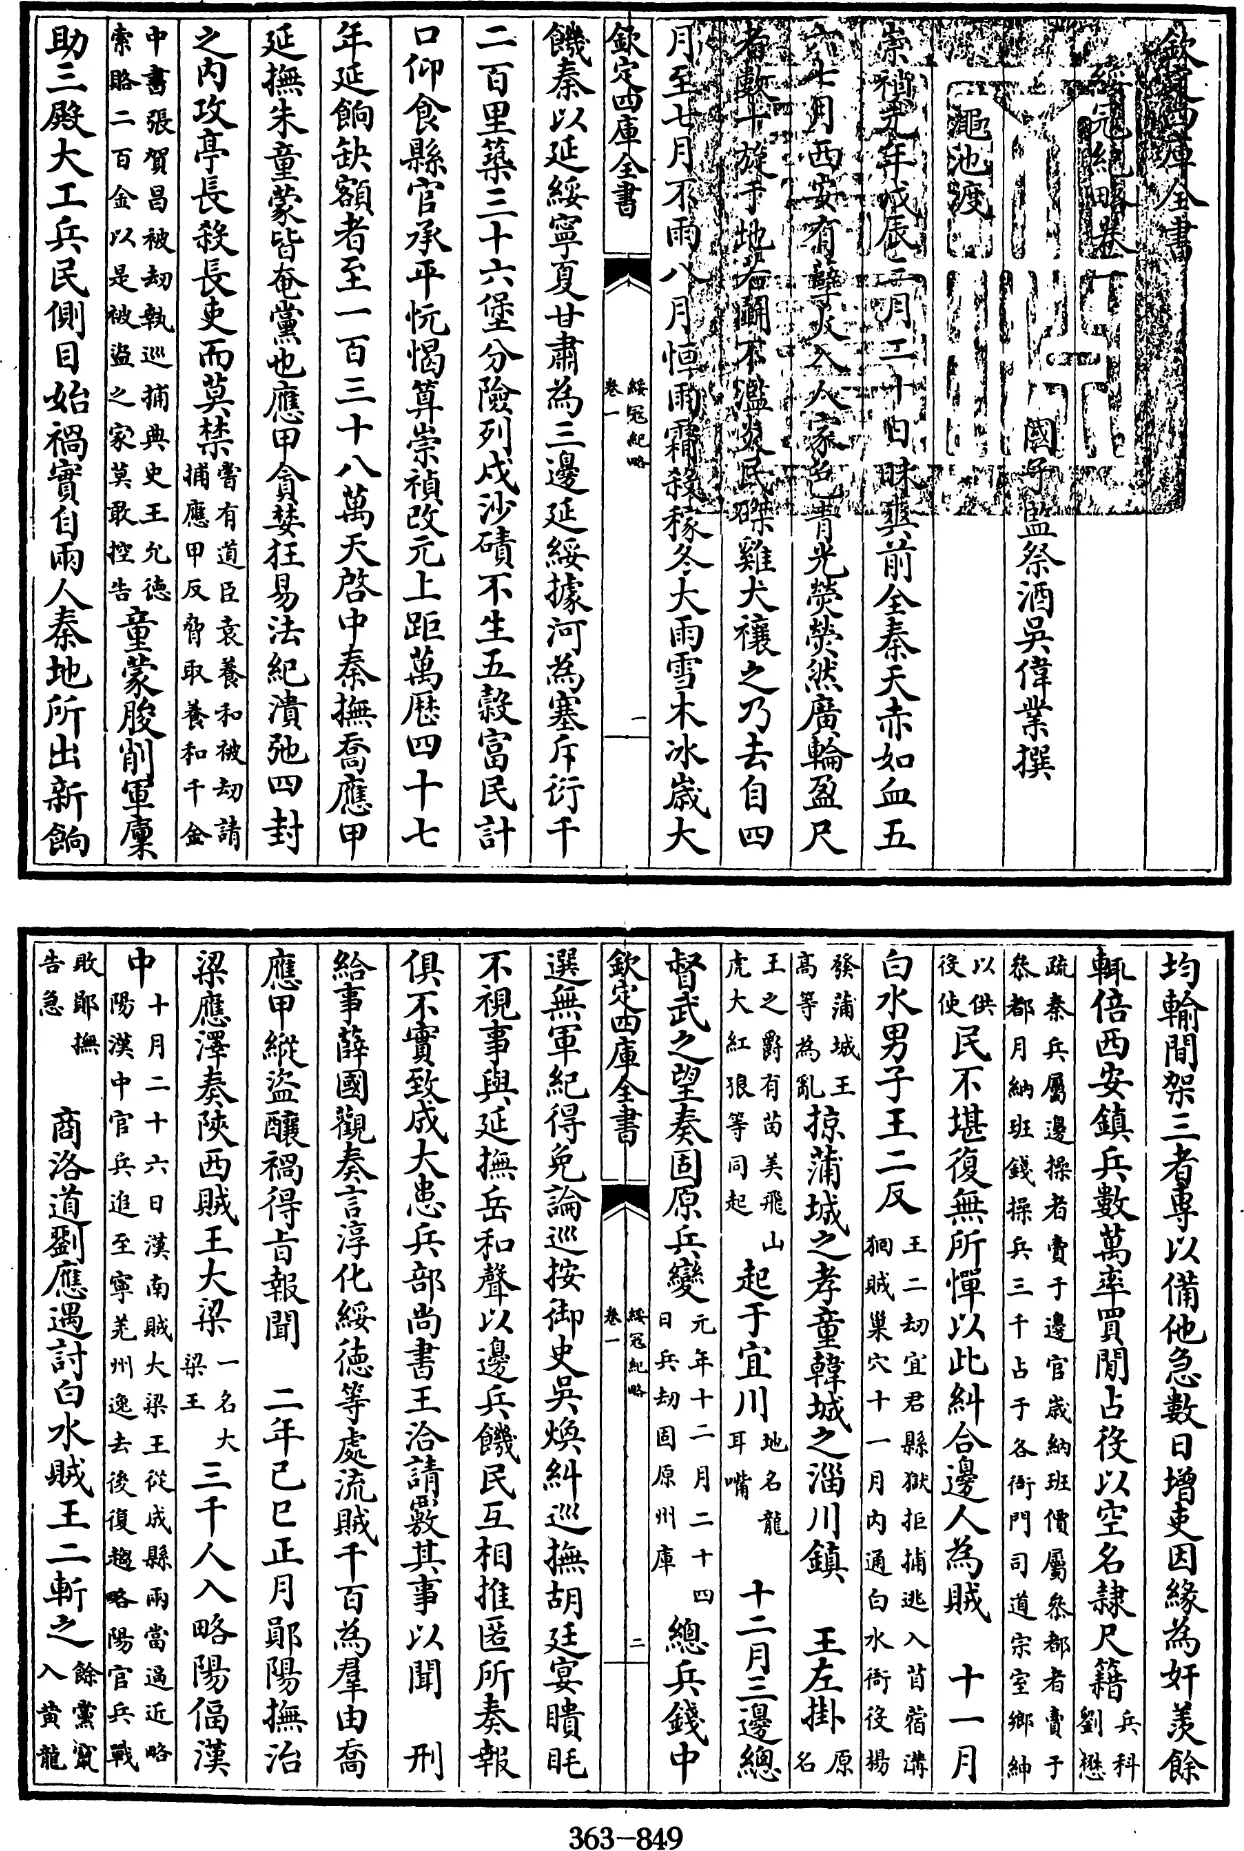 欽定四庫全書
綏寇紀略卷一
國子監祭酒吳偉業撰
澠池渡
崇禎元年戊辰三月二十日昧爽前全秦天赤如血五
六七月西安有孽火入人家色青光熒熒然廣輪盈尺
者數十旋于地若鬬不濫炎民磔雞犬禳之乃去自四
月至七月不雨八月恒雨霜殺稼冬大雨雪木冰歲大
欽定四庫全書
綏寇紀略
卷一
一
饑秦以延綏寧夏甘肅為三邊延綏據河為塞斥衍千
二百里築三十六堡分險列戍沙磧不生五榖富民計
口仰食縣官承平忨愒算崇禎改元上距萬厯四十七
年延餉缺額者至一百三十八萬天啓中秦撫喬應甲
延撫朱童蒙皆奄黨也應甲貪婪狂易法紀潰弛四封
之内攻亭長殺長吏而莫禁嘗有道臣袁養和被劫請
捕應甲反脅取養和千金
中書張賀昌被劫執巡捕典史王允德
索賂二百金以是被盜之家莫敢控告童蒙朘削軍廩
助三殿大工兵民側目始禍實自兩人秦地所出新餉
均輸間架三者專以備他急數日增吏因緣為奸羨餘
輒倍西安鎮兵數萬率買閒占役以空名隷尺籍兵科
劉懋
疏秦兵屬邊操者賣于邊官歲納班價屬叅都者賣于
叅都月納班錢操兵三千占于各衙門司道宗室鄉紳
以供
役使民不堪復無所憚以此糾合邊人為賊 十一月
白水男子王二反王二劫宜君縣獄拒捕逃入苜蓿溝
狪賊巢穴十一月内通白水衙役楊
發蒲城王
高等為亂掠蒲城之孝童韓城之淄川鎮 王左掛原
名
王之爵有苗美飛山
虎大紅狼等同起起于宜川地名龍
耳嘴 十二月三邊總
督武之望奏固原兵變元年十二月二十四
日兵劫固原州庫 總兵錢中
欽定四庫全書
綏寇紀略
卷一
二
選無軍紀得免論巡按御史吳煥糾巡撫胡廷宴瞶眊
不視事與延撫岳和聲以邊兵饑民互相推匿所奏報
俱不實致成大患兵部尚書王洽請覈其事以聞 刑
給事薛國觀奏言淳化綏德等處流賊千百為羣由喬
應甲縱盜釀禍得旨報聞 二年己巳正月鄖陽撫治
梁應澤奏陜西賊王大梁一名大
梁王三千人入略陽偪漢
中十月二十六日漢南賊大梁王從成縣兩當過近略
陽漢中官兵追至寧羌州逸去後復趨略陽官兵戰
敗鄖撫
告急 商洛道劉應遇討白水賊王二斬之餘黨竄
入黄龍
363-849